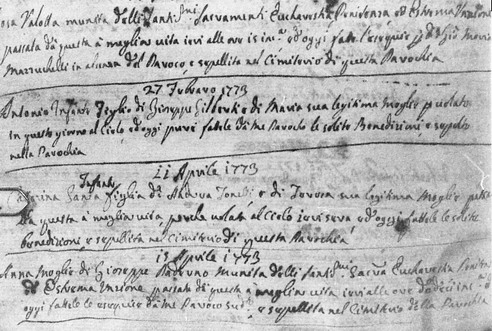 osa Valotta munita delli Santi.mi Sacramenti Eucharestia Penitenza ed Estrema Unzione
passata da questa à miglior vita ieri alle ore is in: ed oggi fattele l'esequie Gio Maria
Mazzuchelli in assenza del Paroco e sepellita nel Cimiterio di questa Parochia
27 Febraro 1773
Antonio Infante Figlio di Giuseppe e di Maria sua legitima moglie volato
in questo giorno al Cielo, ed oggi pure fattele da me Parocho le solite Benedizioni e sepolto
nella Parochia
11 Aprile 1773
Infante
Caterina Santa Figlia di Andrea Tonelli e di sua legitima Moglie
da questa à miglior vita volata al Cielo ieri sera ed oggi fattele le solite
benedizioni e sepellita nel Cimiterio di questa Parochia
13 Aprile 1773
Anna Moglie di Gioseppe munita delli Santi.mi Eucharestia
ed Estrema Unzione passata da questa a miglior vita ieri alle ore
oggi fattele le esequie da me Paroco e sepellita nel Cimitero della Parochia